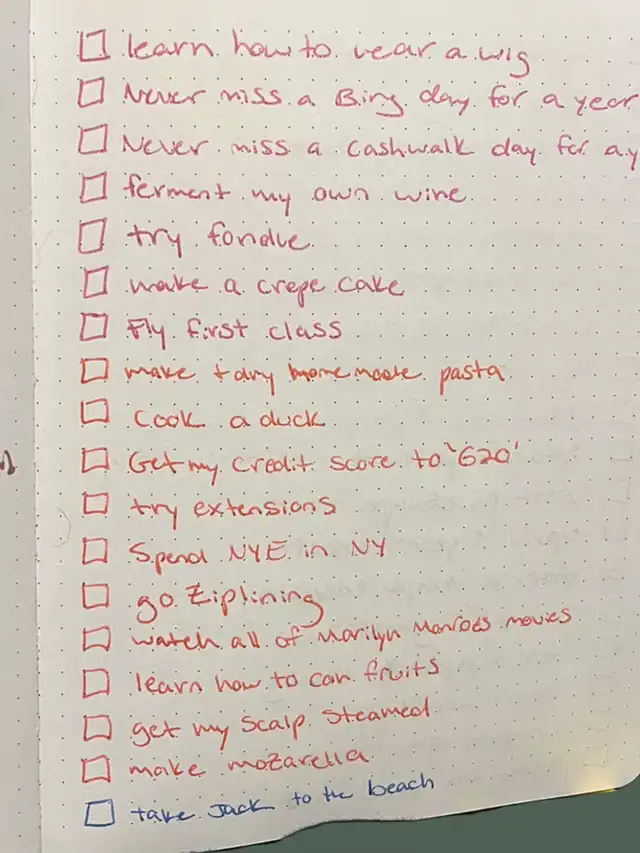 learn how to wear a wig
Never miss a Bing day for a year
Never miss a cashwalk day for a y
ferment my own wine
try fondue
make a crepe cake
Fly first class
make + dry homemade pasta
Cook a duck
Get my credit score to '620'
try extensions
Spend NYE in NY
go Ziplining
watch all of Marilyn Monroes movies
learn how to can fruits
get my scalp steamed
make mozarella
take Jack to the beach